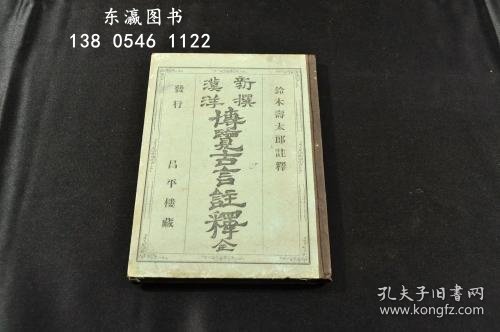 东瀛图书
138 0546 1122
鈴木壽太郎註釋
新撰
漢洋
博覽古言註釋全
發行 昌平樓藏
孔夫子旧书网
www.kongfz.com